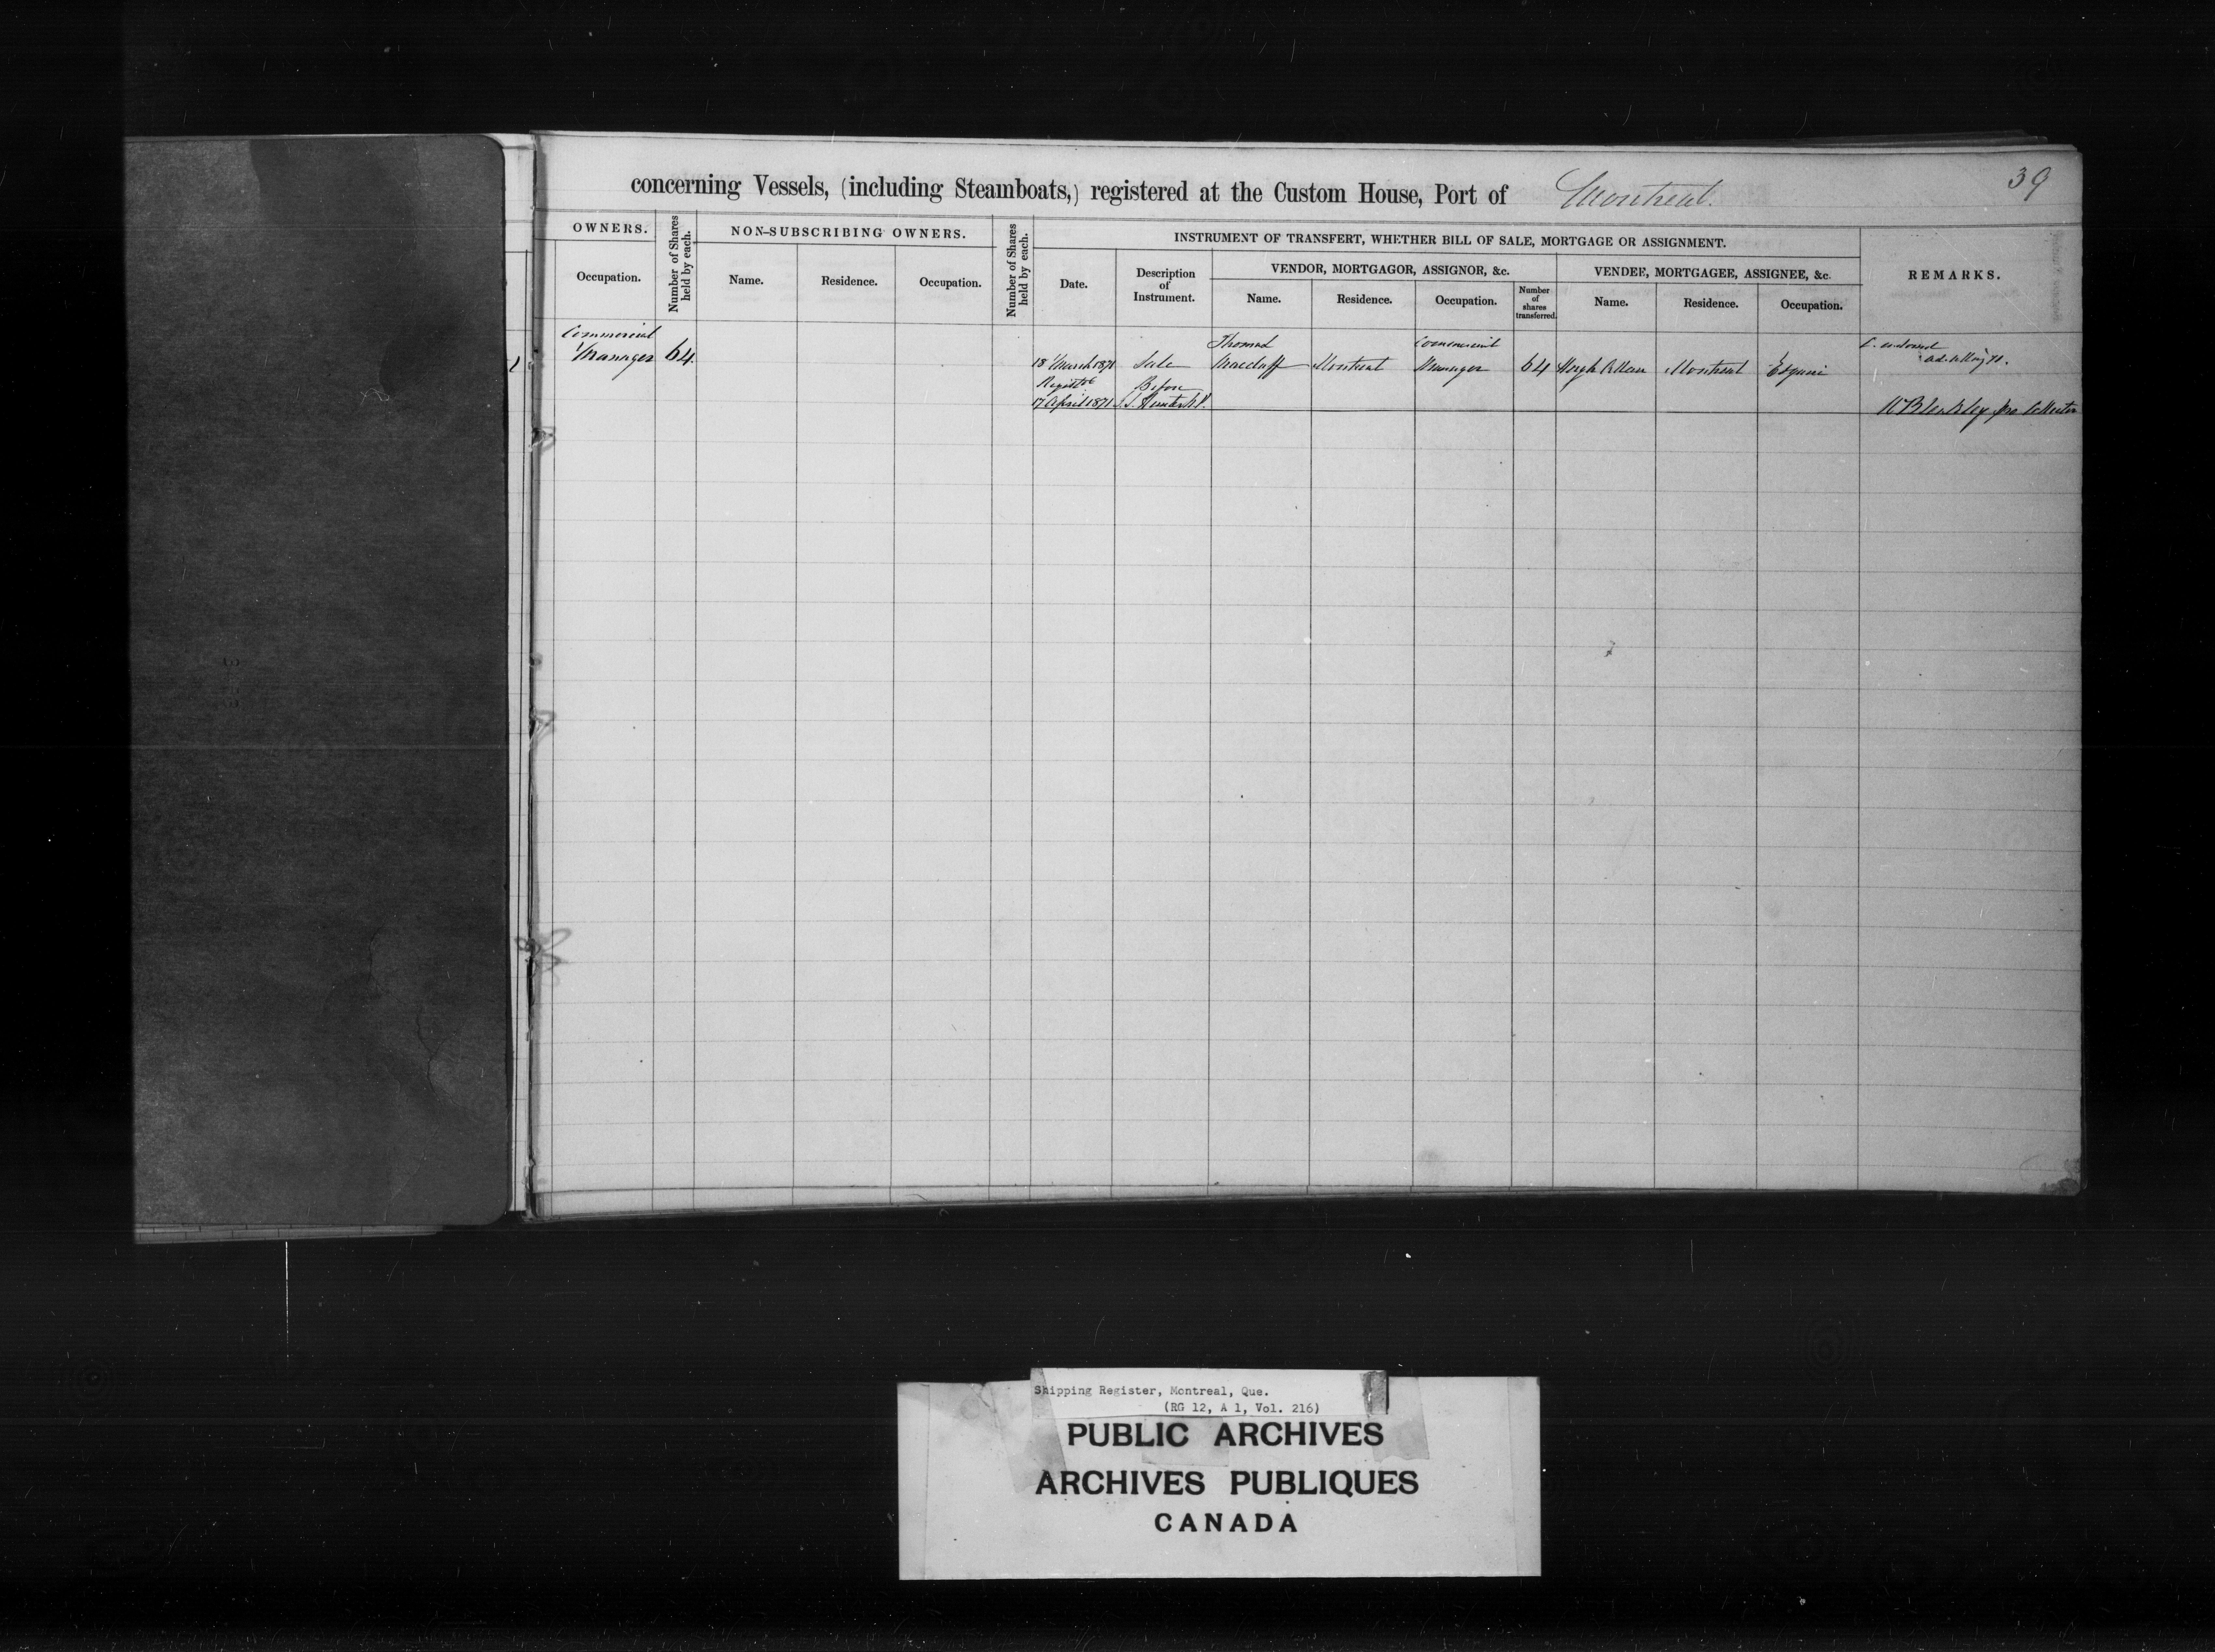 39
concerning Vessels, (including Steamboats,) registered at the Custom House, Port of Montreal.
OWNERS.
Occupation.
Number of Shares held by each.
NON-SUBSCRIBING OWNERS.
Name.
Residence.
Occupation.
Number of Shares held by each.
INSTRUMENT OF TRANSFERT, WHETHER BILL OF SALE, MORTGAGE OR ASSIGNMENT.
Date.
Description
of
Instrument.
VENDOR, MORTGAGOR, ASSIGNOR, &c.
Name.
Residence.
Occupation.
Number
of
shares
transferred.
VENDEE, MORTGAGEE, ASSIGNEE, &c.
Name.
Residence.
Occupation.
REMARKS.
Commercial
Manager 64
Thomas Commercial
18 March 1871 Sale Macduff Montreal Manager 64 Hugh Allan Montreal Esquire
Before
17 April 1871
Shipping Register, Montreal, Que.
(RG 12, A 1, Vol. 216)
PUBLIC ARCHIVES
ARCHIVES PUBLIQUES
CANADA